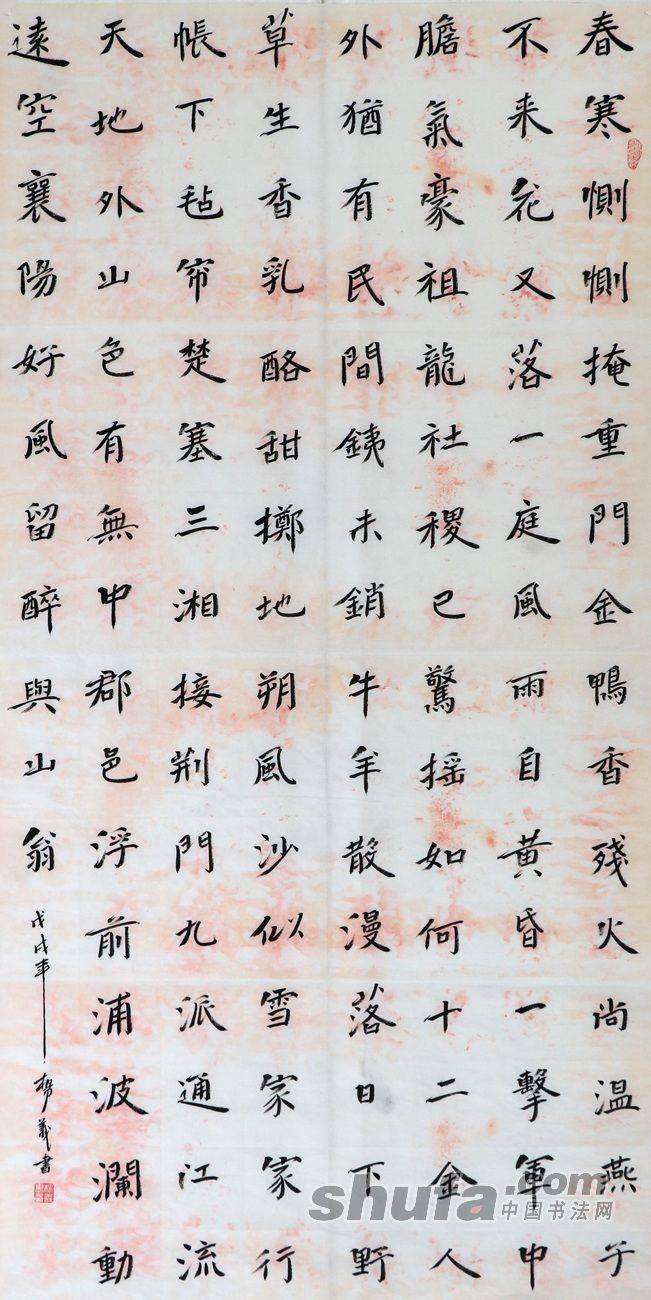 春寒惻惻掩重門金鴨香殘火尚温燕子
不来花又落一庭風雨自黄昏一擊軍中
膽氣豪祖龍社稷已驚摇如何十二金人
外猶有民間銕未銷牛羊散漫落日下野
草生香乳酪甜擲地朔風沙似雪家家行
帳下毡帘楚塞三湘接荆門九派通江流
天地外山色有無中郡邑浮前浦波瀾動
遠空襄陽好風留醉與山翁
戊戌年
義書
shufa.com
中国书法网